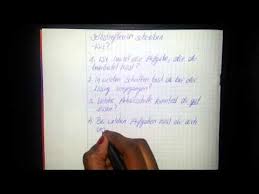 Selbstreflexion schreiben
- Wie?
1. Wie lautet die Aufgabe, die du
bearbeitet hast?
2. In welchen Schritten bist du bei der
Lösung vorgegangen?
3. Welche Arbeitsschritte konntest du gut
lösen?
4. Bei welchen Aufgaben hast du dich